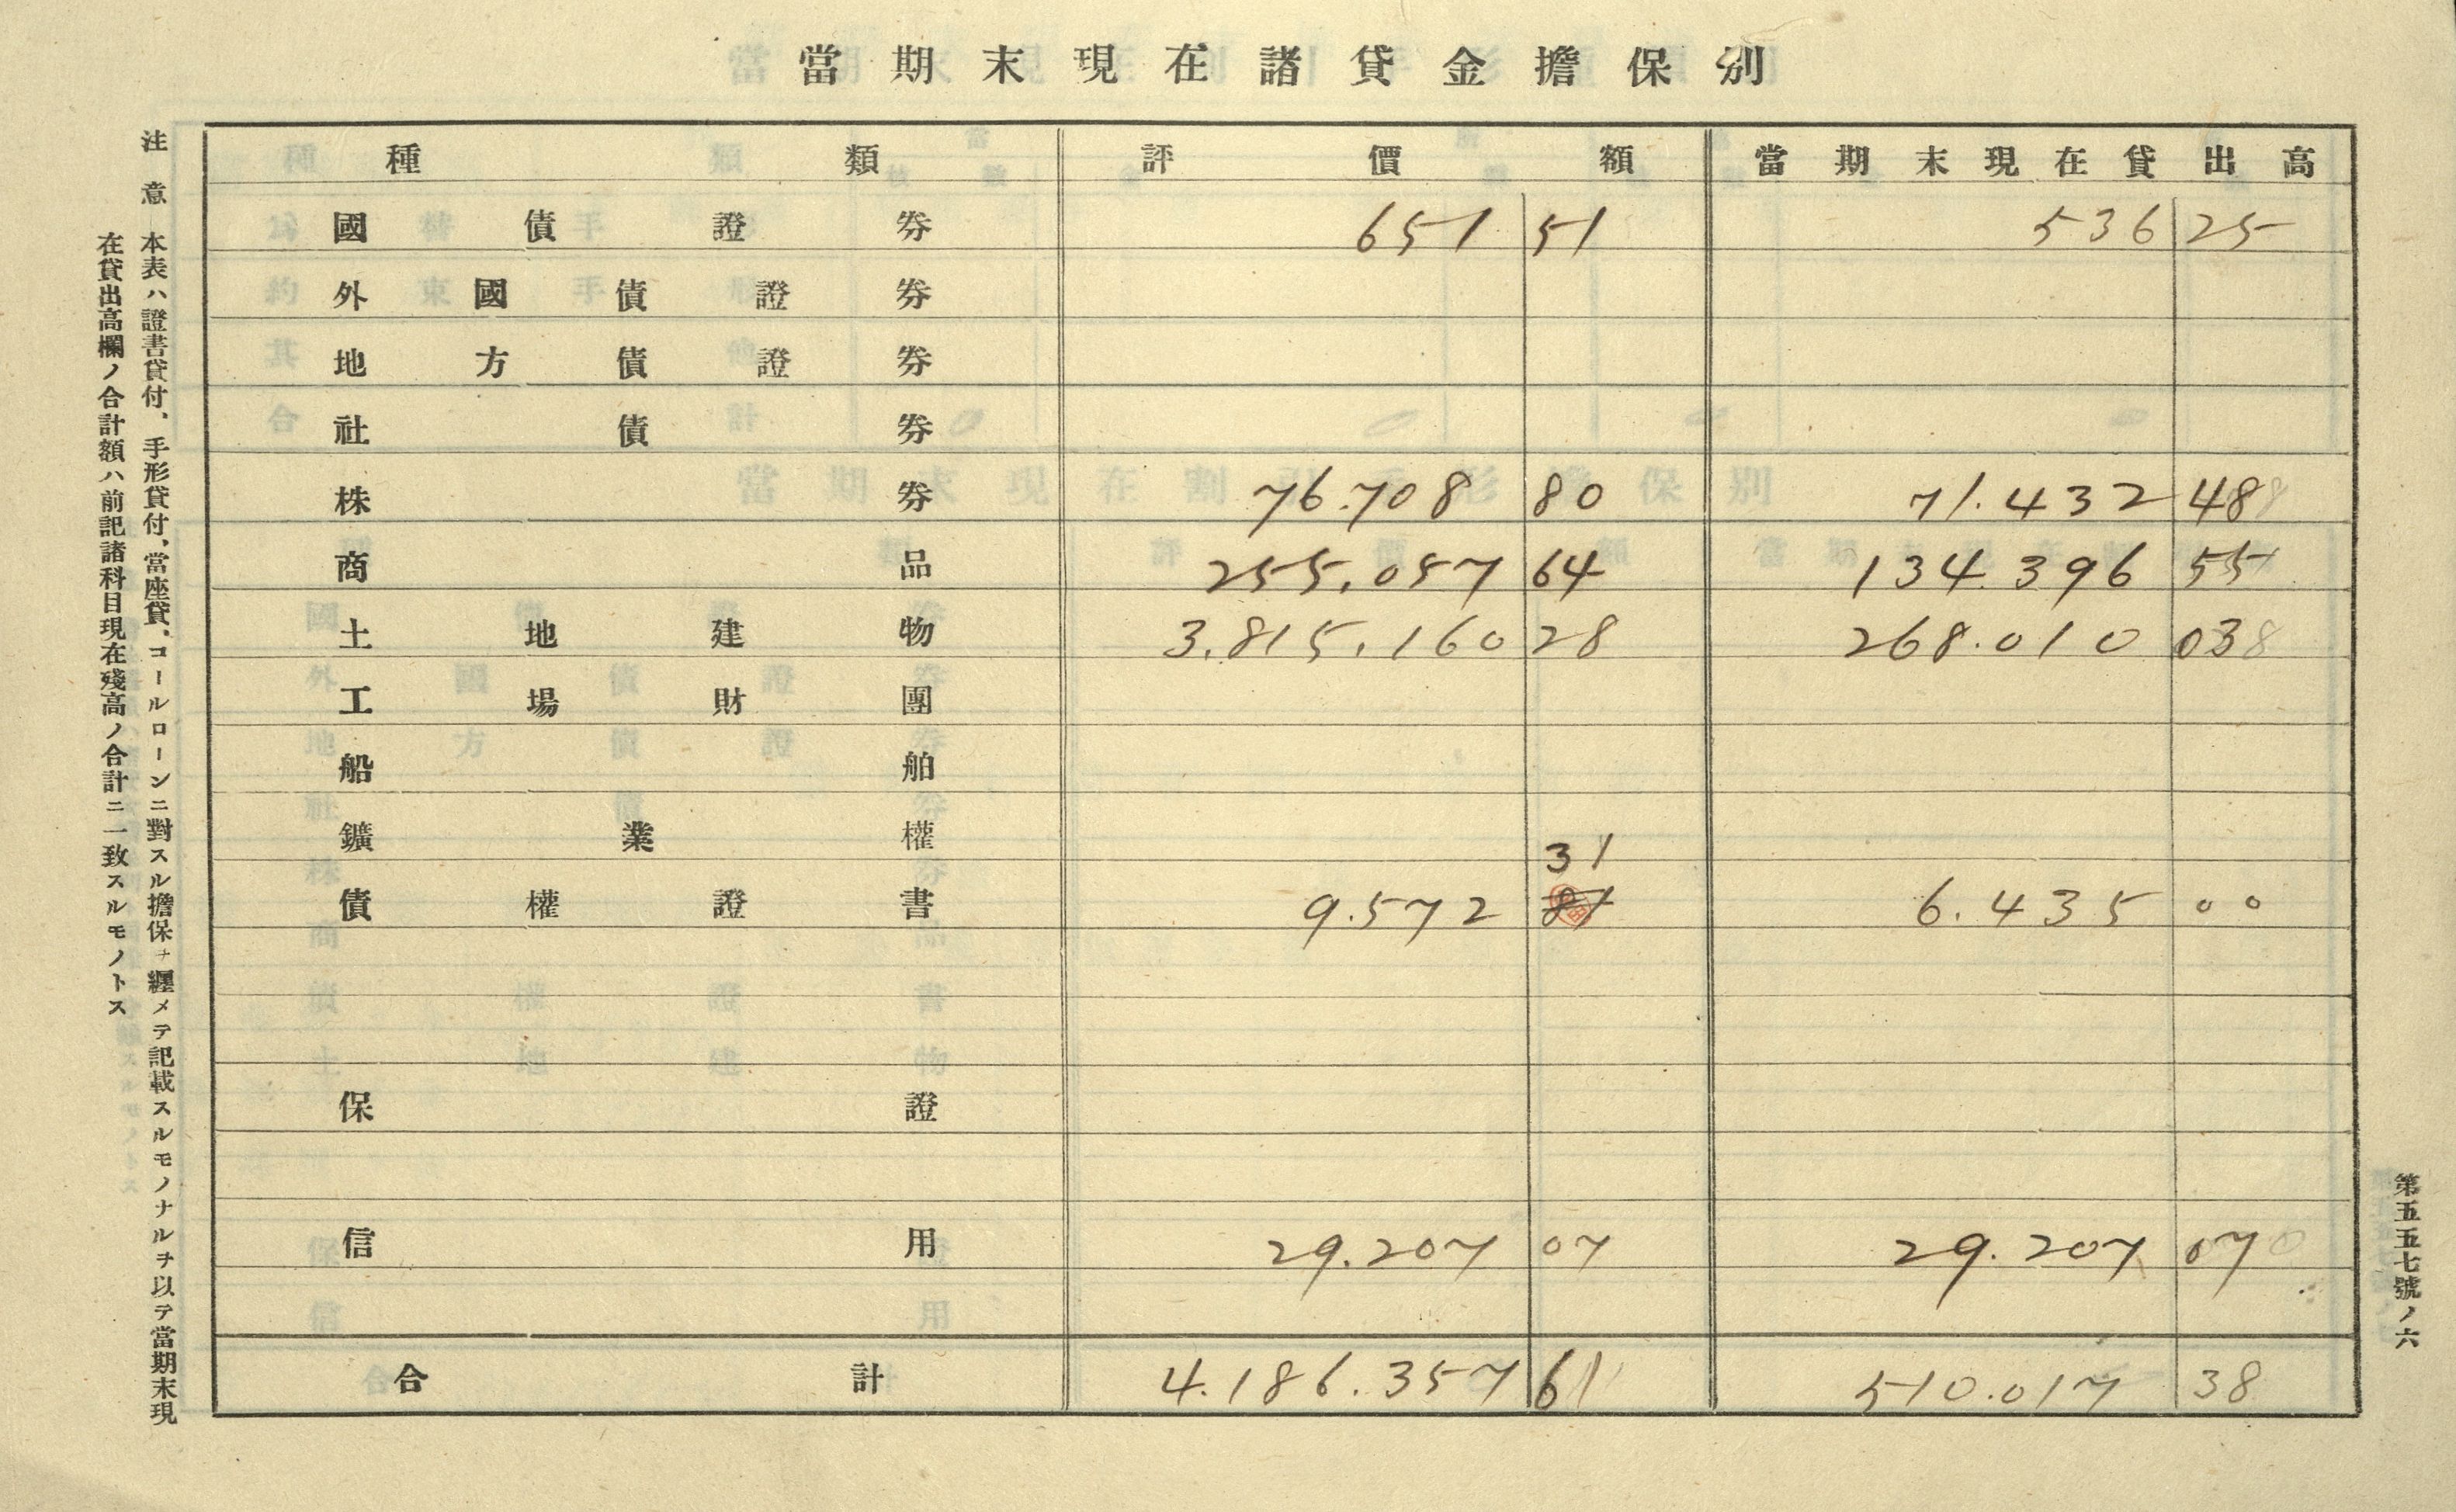 當期末現在諸貸金擔保別
種類 評價額 當期末現在貸出高
國債證券 651 51 536 25
外國債證券
地方債證券
社債券
株券 76.708 80 71.432 48
商品 255.057 64 134.396 55
土地建物 3.815.160 28 268.010 03
工場財團
船舶
鑛業權
31
債權證書 9.572 81 6.435 00
保證
信用 29.207 07 29.207 07
合計 4.186.357 61 510.017 38
注意 本表ハ證書貸付、手形貸付、當座貸、コールローンニ對スル擔保ヲ纒メテ記載スルモノナルヲ以テ當期末現
在貸出高欄ノ合計額ハ前記諸科目現在殘高ノ合計ニ一致スルモノトス
第五五七號ノ六